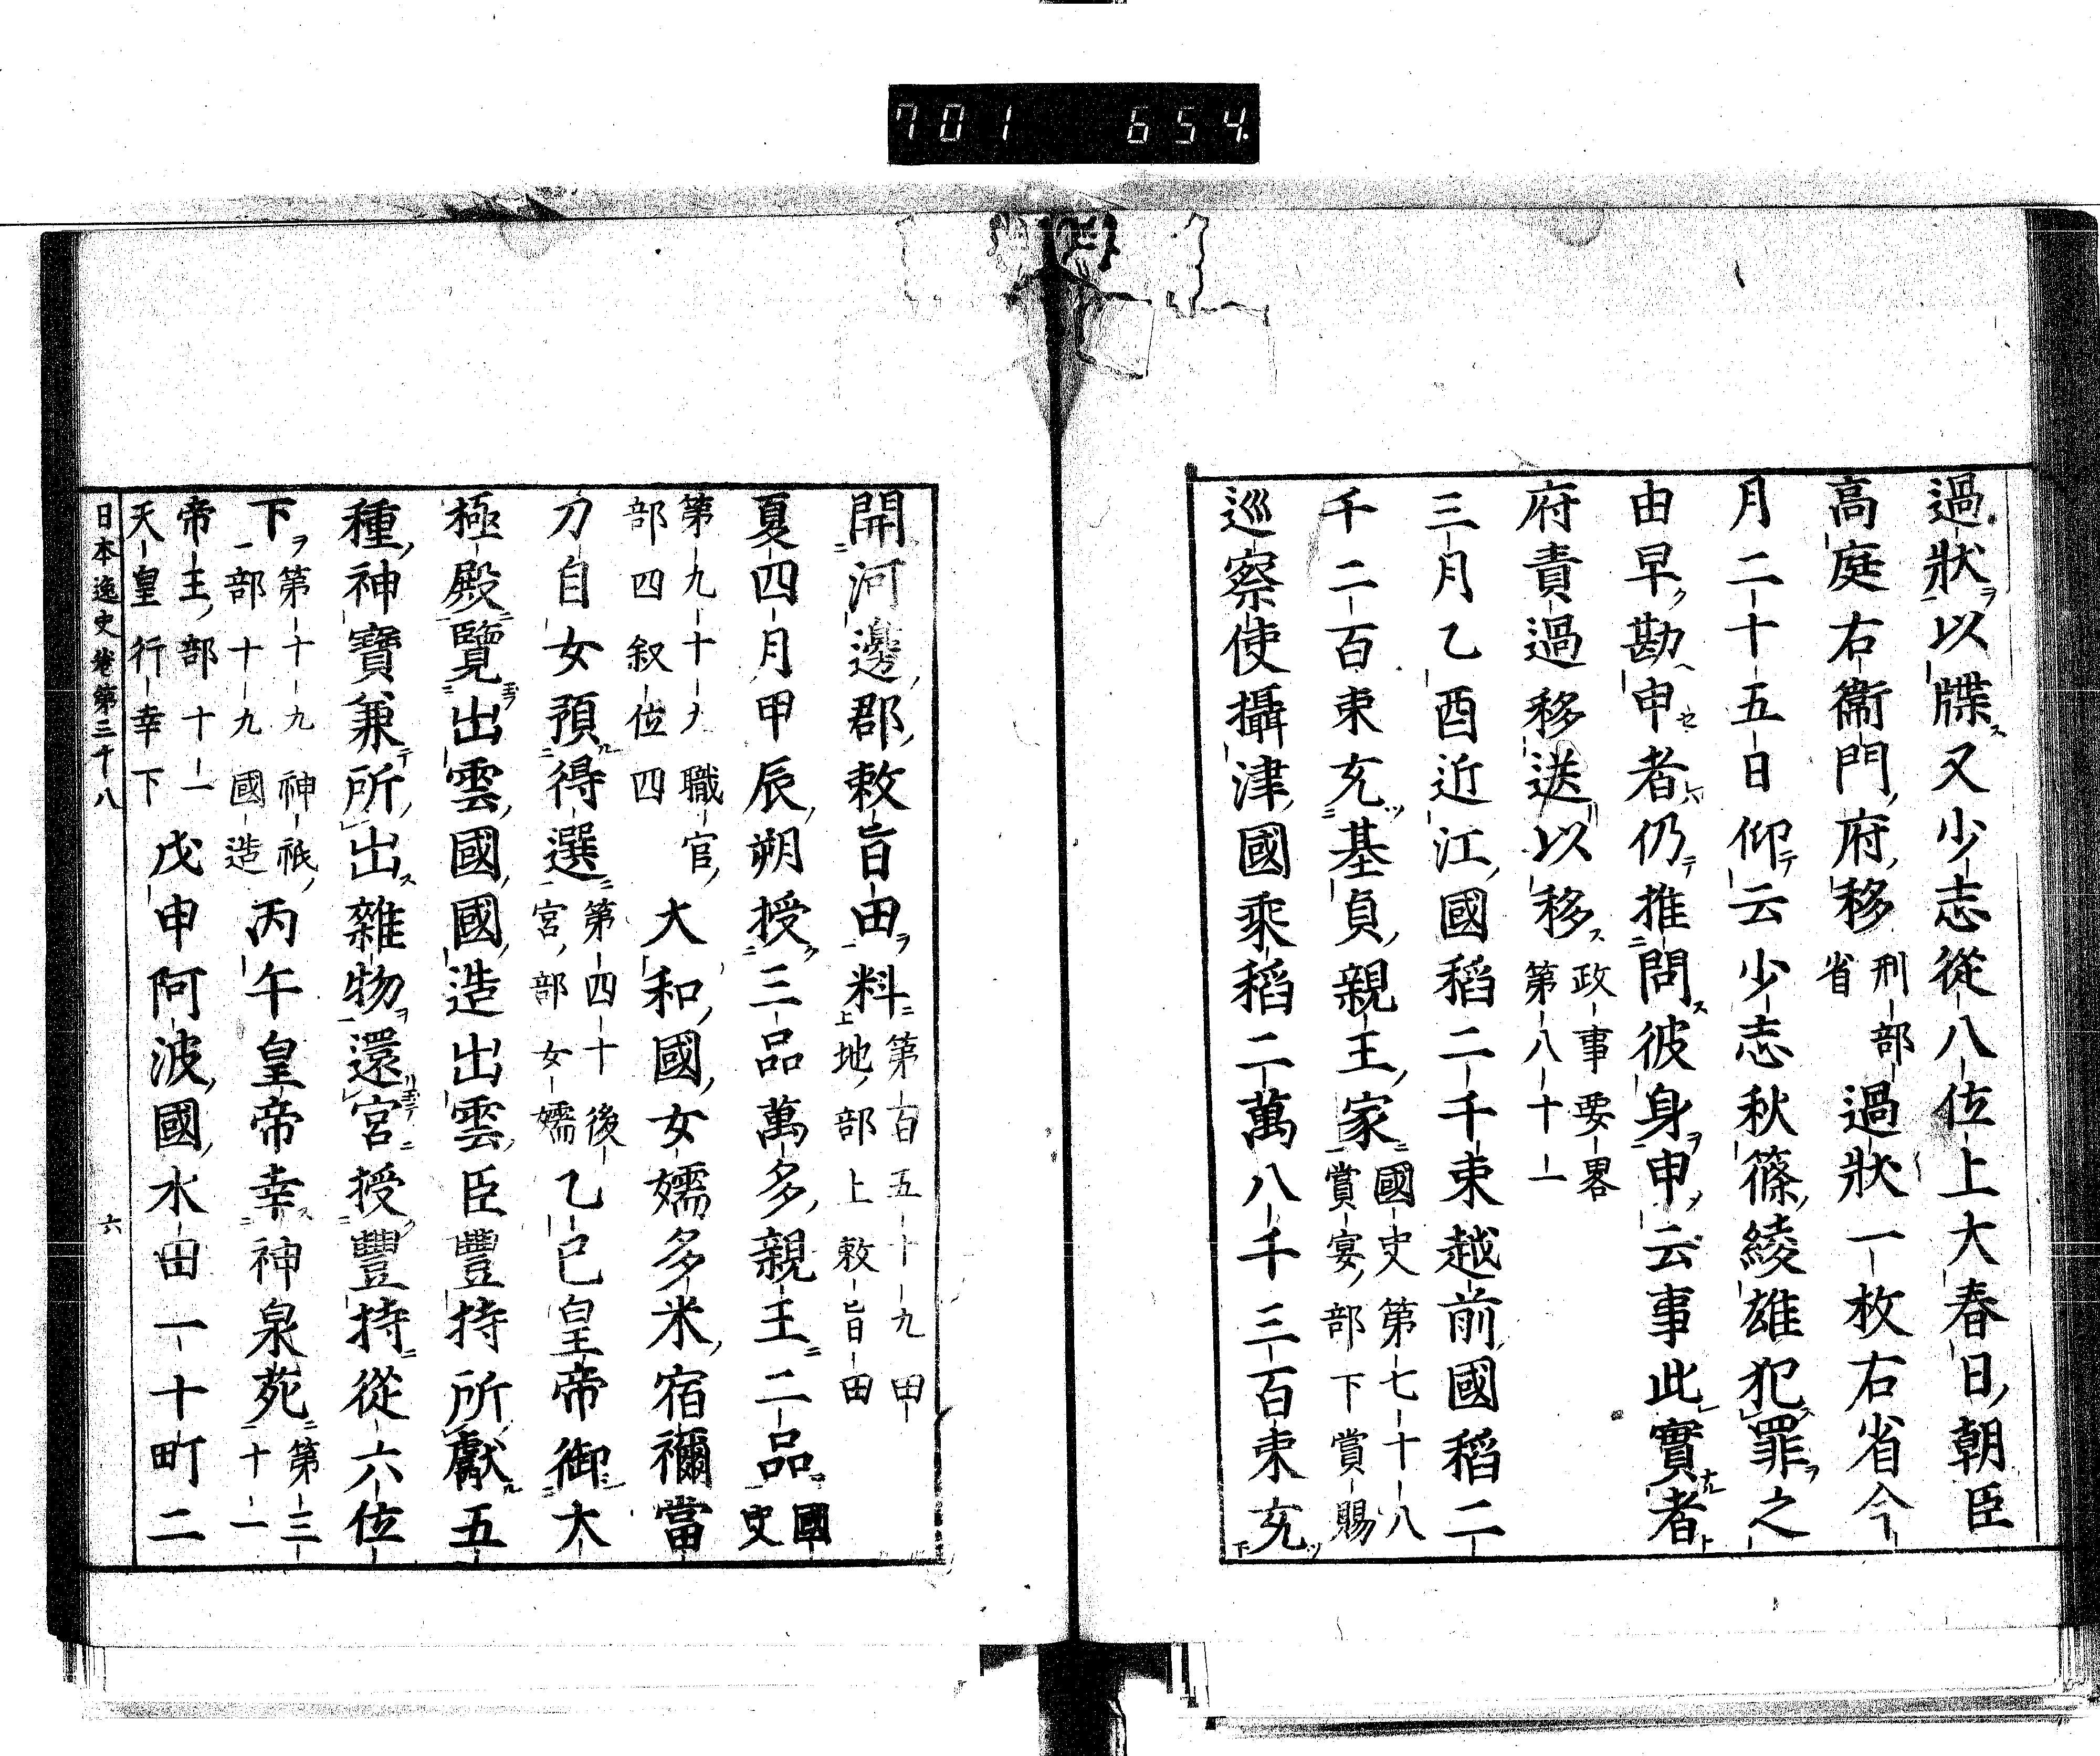 701 654
過狀以牒又少志從八位上大春日朝臣
高庭右衞門府移刑部省過狀一枚右省今
月二十五日仰云少志秋篠綾雄犯罪之
由早勘申者仍推問彼身申云事此實者
府責過移送以移政事要畧第八十一
三月乙酉近江國稻二千束越前國稻二
千二百束充基貞親王家國史第七十八賞宴部下賞賜
巡察使攝津國乘稻二萬八千三百束充
開河邊郡敕旨田料第百五十九田地部上敕旨田
夏四月甲辰朔授三品萬多親王二品國史
第九十九職官部四叙位四大和國女孺多米宿禰當
刀自女預得選第四十後宮部女孺乙巳皇帝御大
極殿覽出雲國國造出雲臣豐持所獻五
種神寶兼所出雜物還宮授豐持從六位
下第十九神祇部十九國造丙午皇帝幸神泉苑第三十一
帝王部十一天皇行幸下戊申阿波國水田一十町二
日本逸史卷第三十八 六